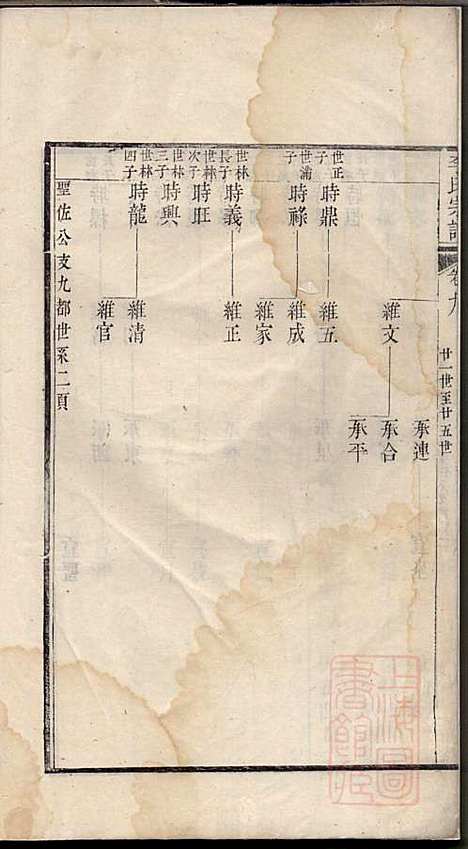 李氏宗譜
卷九
廿一世至廿五世
承連
維文
承合
承平
世正子
時鼎
維五
世浦子
時祿
維成
維家
世林長子
時義
維正
世林次子
時旺
世林三子
時興
世林四子
時龍
維清
維官
聖佐公支九都世系二頁
上海圖書館藏